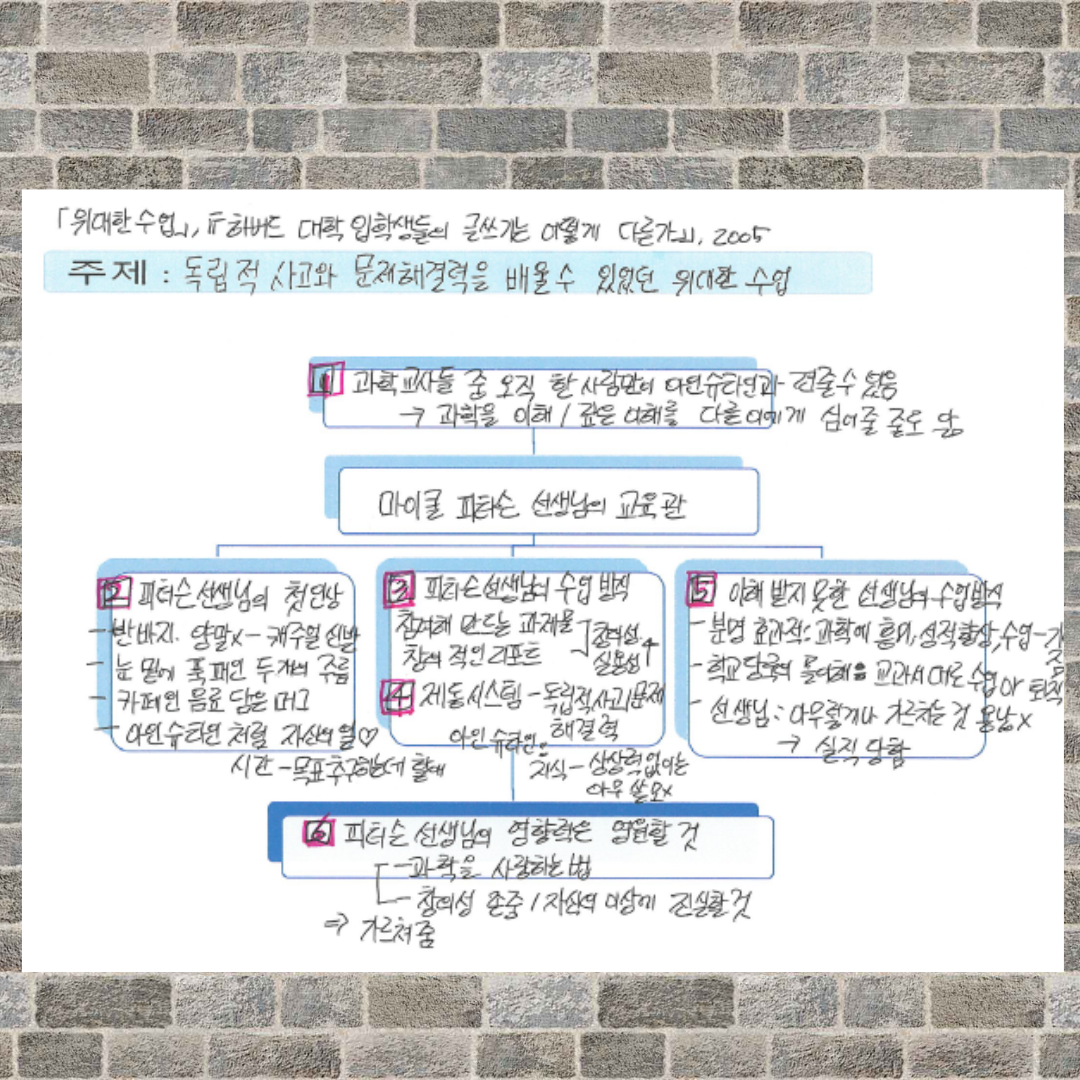 「위대한 수업」, 『하버드 대학 입학생들의 글쓰기는 어떻게 다른가』, 2005
주제 : 독립적 사고와 문제해결력을 배울 수 있었던 위대한 수업
1 과학교사들 중 오직 한 사람만이 아인슈타인과 견줄 수 있음
→ 과학을 이해 / 깊은 이해를 다른 이에게 심어줄 줄도 앎
마이클 피터슨 선생님의 교육관
2 피터슨 선생님의 첫인상
- 반바지. 양말x - 캐주얼 신발
- 눈 밑에 푹 패인 두 개의 주름
- 카페인 음료 담은 머그
- 아인슈타인처럼 자신의 일♡
시간 - 목표추구하는데 할애
3 피터슨 선생님의 수업 방식
참여해 만드는 과제물
창의적인 리포트
창의성
실용성 ↑
4 제동시스템 - 독립적 사고, 문제
해결력
아인슈타인:
지식 - 상상력 없이는
아무 쓸모x
5 이해 받지 못한 선생님의 수업방식
- 분명 효과적: 과학에 흥미, 성적향상, 수업 -
- 학교당국의 몰이해: 교과서대로 수업 or 퇴직
- 선생님: 아무렇게나 가르치는 것 용납x
→ 실직 당함
6 피터슨 선생님의 영향력은 영원할 것
- 과학을 사랑하는 법
- 창의성 존중 / 자신의 이상에 진실할 것
⇒ 가르쳐 줌